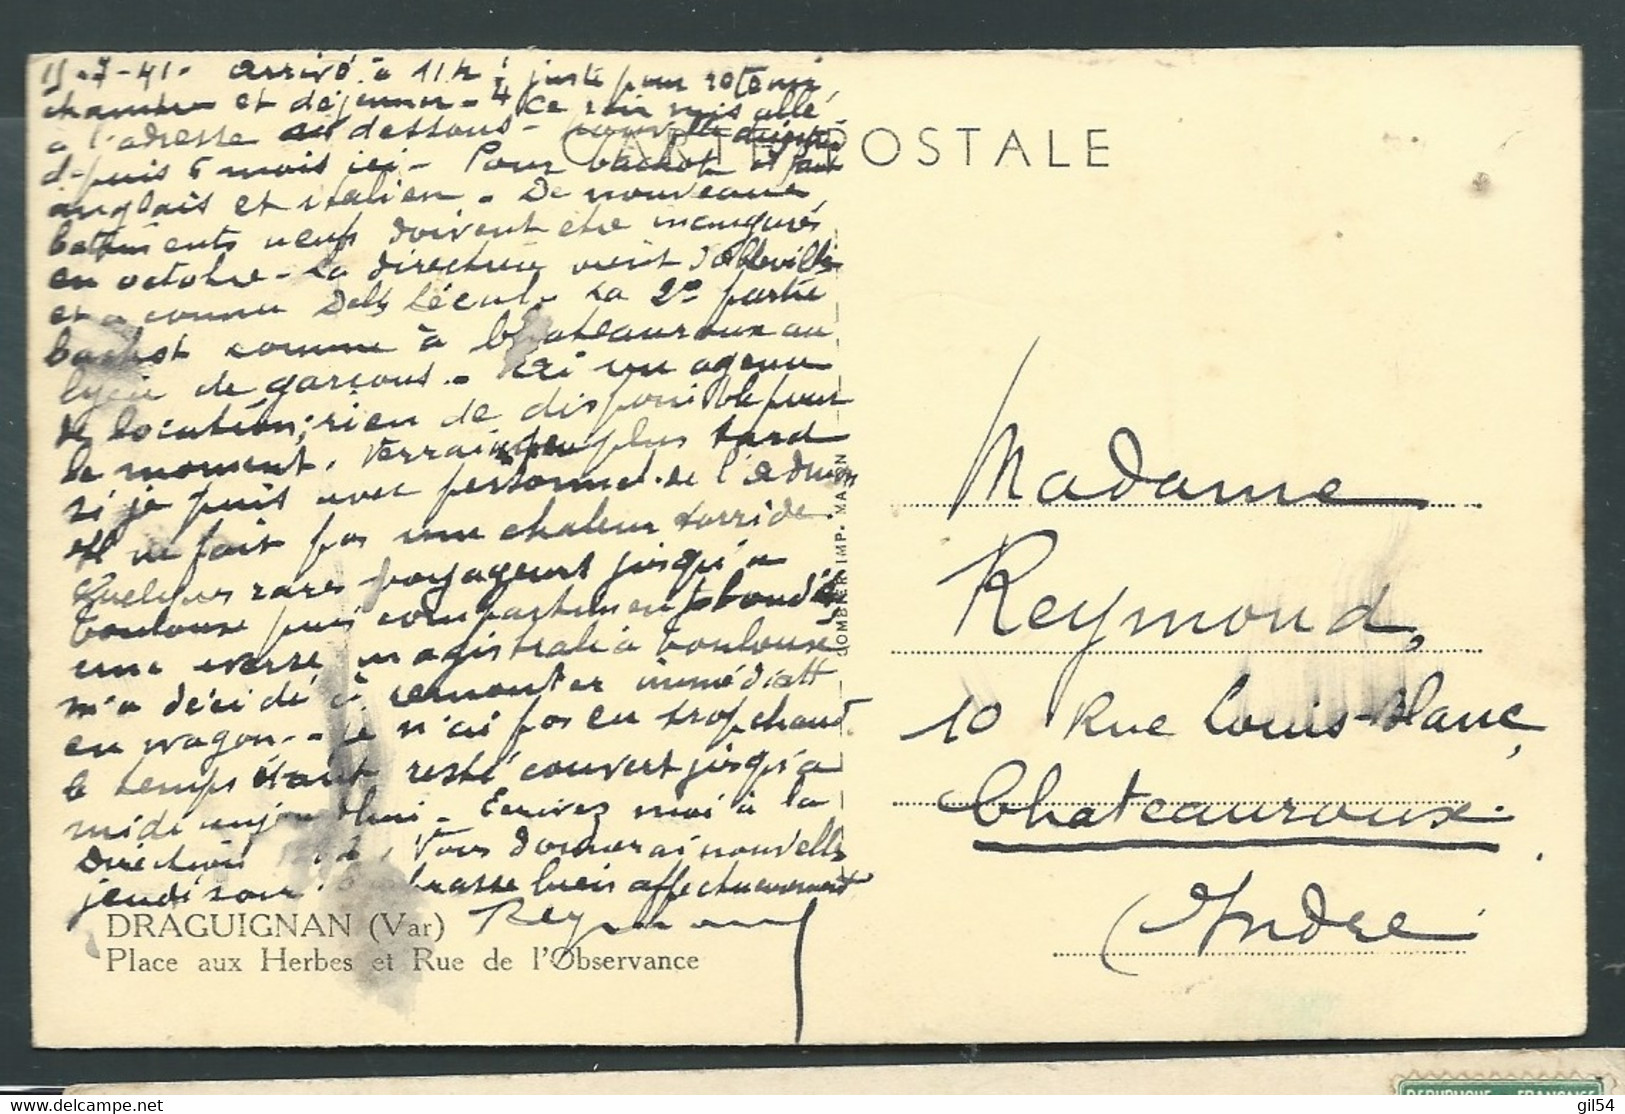 -7-41. arrivé à 11h 1/4 juste pour retenir
chambre et déjeuner - Ce soir suis allé
à l'adresse ci dessous -
depuis 6 mois ici - Pour bachot il faut
anglais et italien - De nouveaux
bâtiments neufs doivent être inaugurés
en octobre - La directrice vient d'Abbeville
et a connu La 2e partie
bachot comme à Chateauroux au
lycée de garçons. - Vu un agence
de location; rien de disponible pour
le moment. Verrai plus tard
si je puis avec personnel de l'
Il ne fait pas une chaleur torride.
Quelques rares voyageurs jusqu'à
Toulouse puis compartiments bondés
une averse magistrale à Toulouse
m'a décidé à remonter immédiatt
en wagon - je n'ai pas eu trop chaud
le temps étant resté couvert jusqu'à
midi aujourd'hui - Ecrivez moi à la
Direction Vous donnerai nouvelles
jeudi soir embrasse bien affectueusement
Reymond
CARTE POSTALE
COMBIER IMP. MACON
Madame
Reymond,
10 Rue Louis-Blanc,
Chateauroux.
(Indre
DRAGUIGNAN (Var)
Place aux Herbes et Rue de l'Observance
REPUBLIQUE FRANÇAISE
delcampe.net
gil54